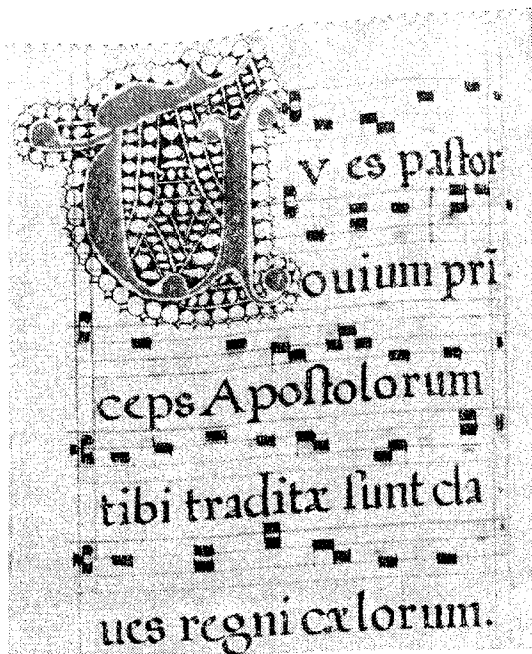 TV es paſtor
ouium prī
ceps Apoſtolorum
tibi traditæ ſunt cla
ues regni cælorum.